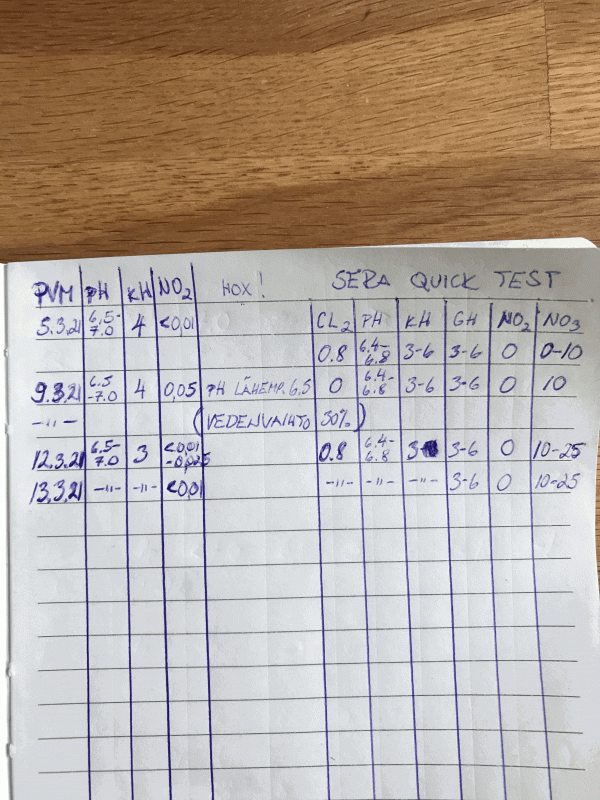 PVM PH KH NO₂ HOX! SERA QUICK TEST
5.3.21 6,5-7.0 4 <0,01 CL₂ PH KH GH NO₂ NO₃
0.8 6.4-6.8 3-6 3-6 0 0-10
9.3.21 6.5-7.0 4 0,05 PH LÄHEMP. 6,5 0 6.4-6.8 3-6 3-6 0 10
-"- (VEDENVAIHTO 30%)
12.3.21 6,5-7.0 3 <0,01-0,025 0.8 6.4-6.8 3 3-6 0 10-25
13.3.21 -"- -"- <0,01 -"- -"- -"- 3-6 0 10-25